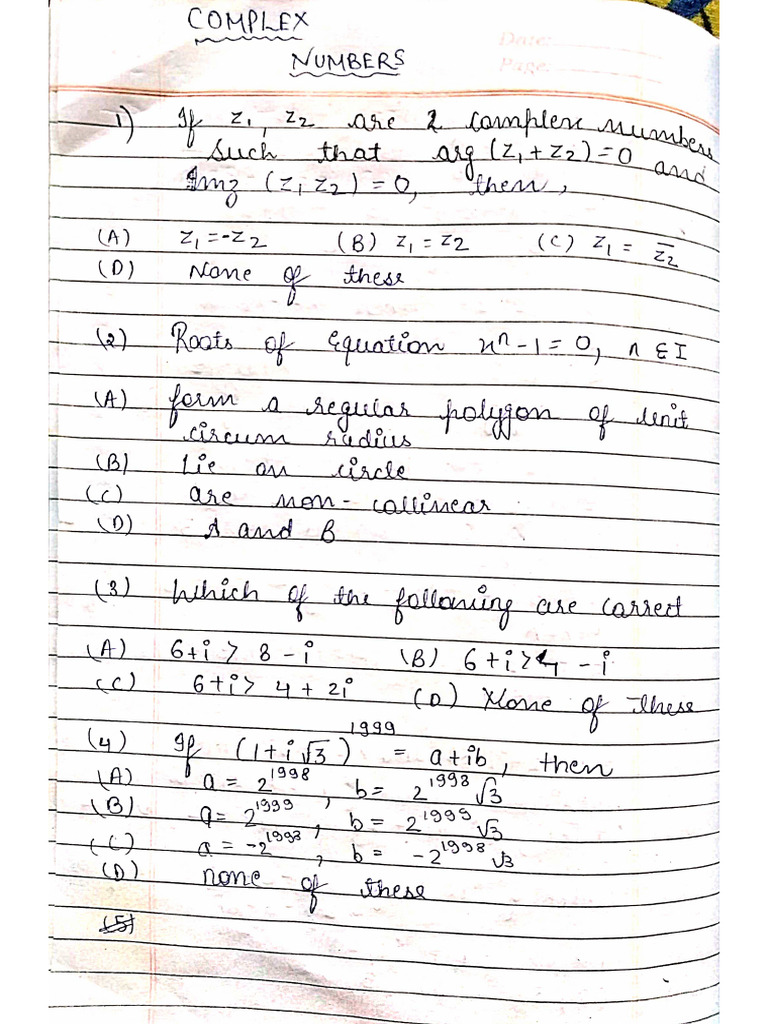 COMPLEX
NUMBERS
Date:
Page:
1) If z₁, z₂ are 2 complex numbers
such that arg (z₁+z₂)=0 and
Img (z₁ z₂) = 0, then,
(A) z₁=-z₂ (B) z₁ = z₂ (C) z₁ = z̅₂
(D) None of these
(2) Roots of Equation xⁿ-1=0, n ∈ I
(A) form a regular polygon of unit
circum radius
(B) Lie on circle
(C) are non-collinear
(D) A and B
(3) Which of the following are correct
(A) 6+i > 8-i (B) 6+i > 4-i
(C) 6+i > 4+2i (D) None of these
(4) If (1+i√3)¹⁹⁹⁹ = a+ib, then
(A) a = 2¹⁹⁹⁸, b= 2¹⁹⁹⁸√3
(B) a= 2¹⁹⁹⁹, b = 2¹⁹⁹⁹√3
(C) a = -2¹⁹⁹⁸, b = -2¹⁹⁹⁸√3
(D) none of these
(5)